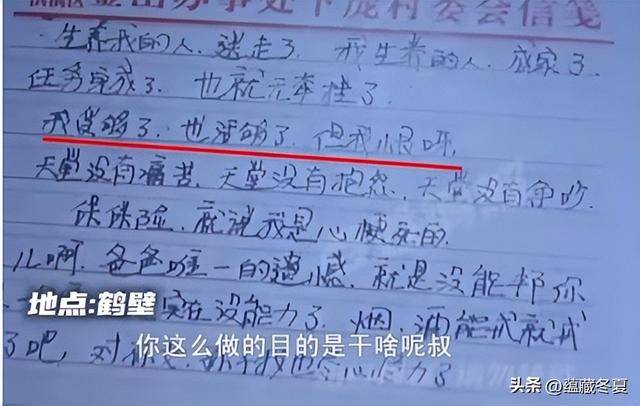 金山办事处下庞村委会信笺
生养我的人，送走了，我生养的人，成家了，
任务完成了，也就无牵挂了
我受够了，也活够了，但我恨呀，
天堂没有痛苦，天堂没有抱怨，天堂没有争吵，
保保险，就说我是心梗死的
儿啊，爸爸唯一的遗憾，就是没能帮你
实在没能力了，烟，酒能戒就戒
了吧，对你
尽心尽力了
地点:鹤壁
你这么做的目的是干啥呢叔
头条 @蕴藏冬夏